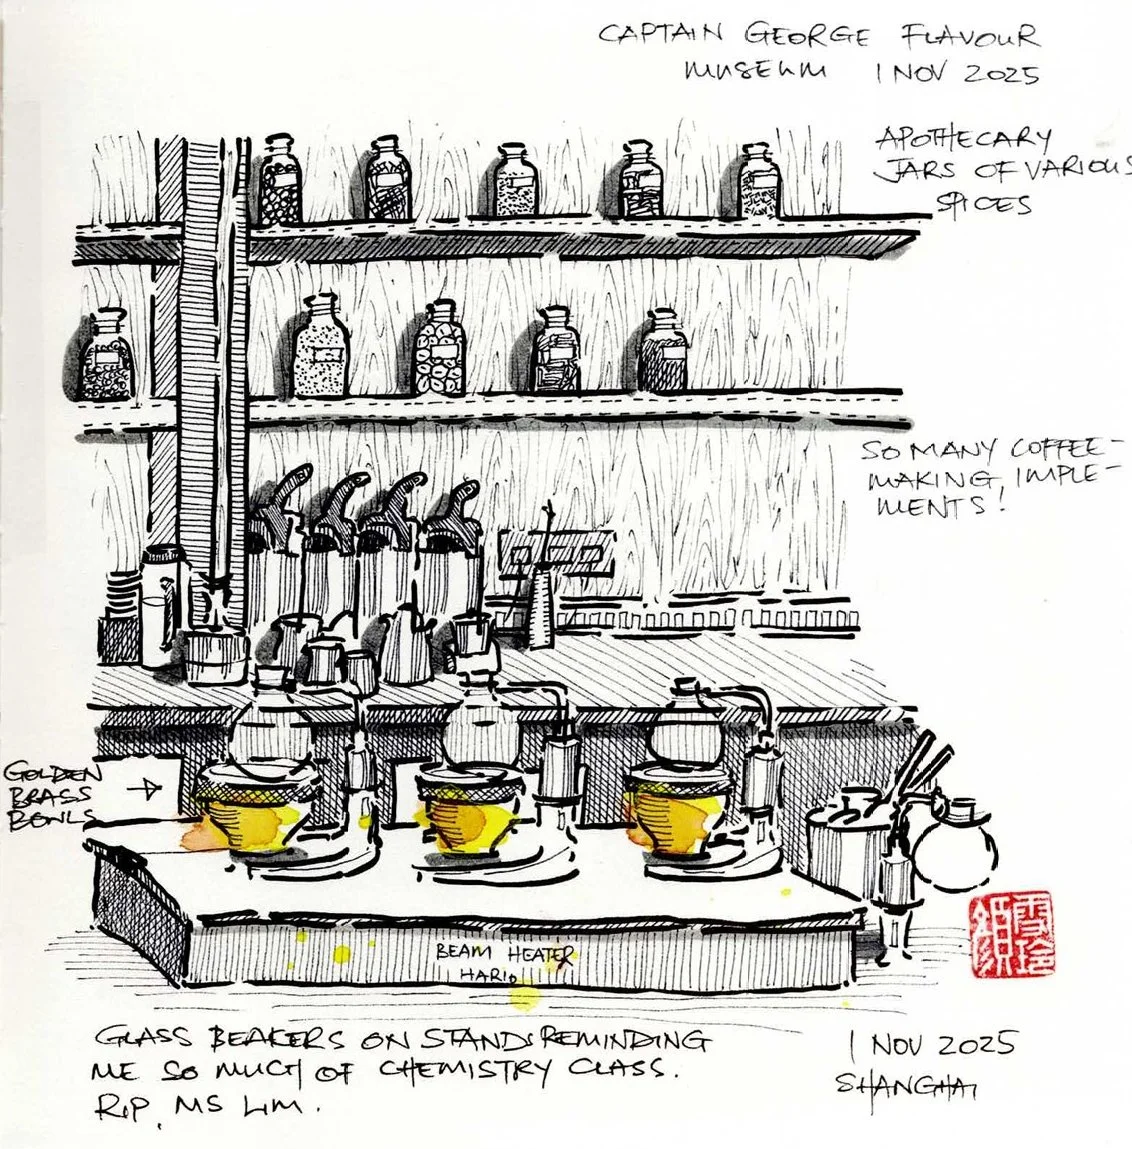 CAPTAIN GEORGE FLAVOUR
MUSEUM 1 NOV 2025
APOTHECARY
JARS OF VARIOUS
SPICES
SO MANY COFFEE-
MAKING IMPLE-
MENTS!
GOLDEN
BRASS
BOWLS
BEAM HEATER
HARIO
GLASS BEAKERS ON STANDS REMINDING
ME SO MUCH OF CHEMISTRY CLASS.
RIP, MS LIM.
1 NOV 2025
SHANGHAI
雪玲